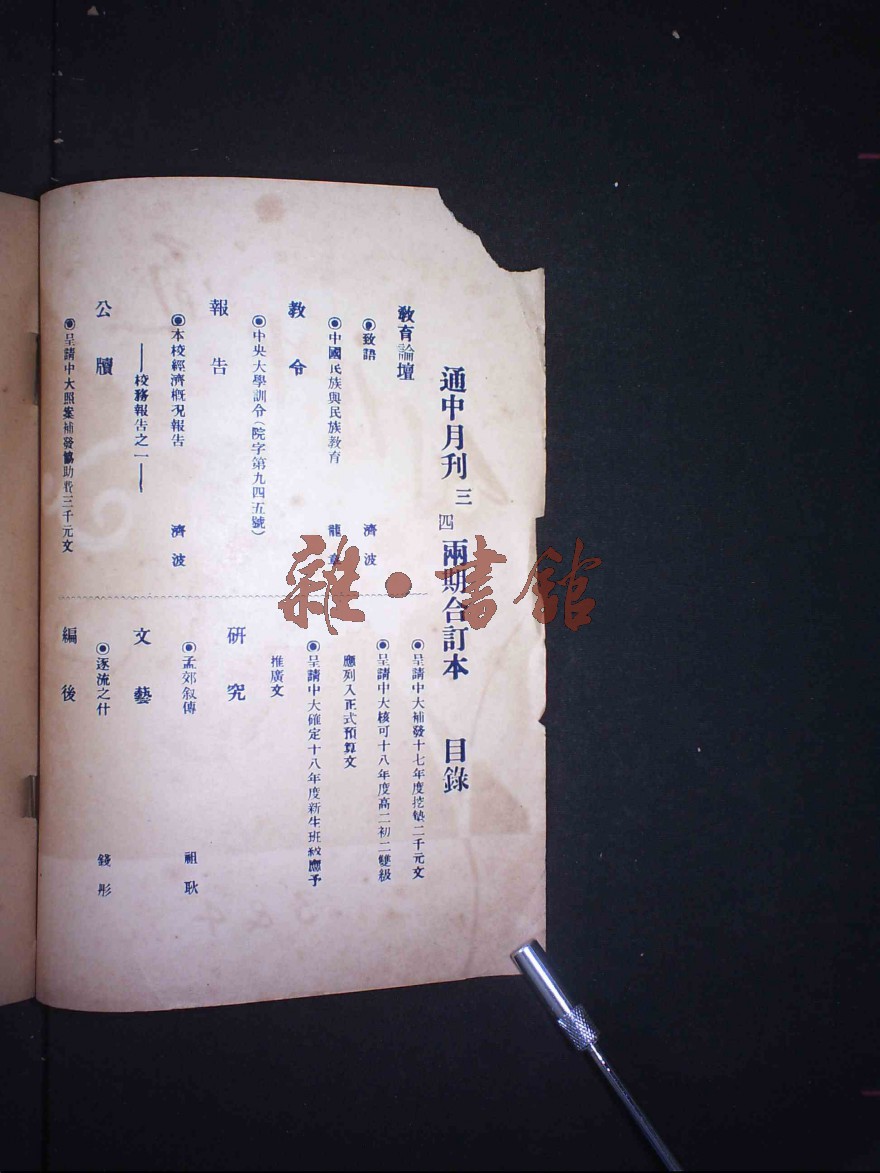 通中月刊 三四 兩期合訂本 目錄
教育論壇
◉致語 濟波
◉中國民族與民族教育 龍章
教令
◉中央大學訓令(院字第九四五號)
報告
◉本校經濟概況報告 濟波
——校務報告之一——
公牘
◉呈請中大照案補發協助費三千元文
◉呈請中大補發十七年度挖墊二千元文
◉呈請中大核可十八年度高二初二雙級
應列入正式預算文
◉呈請中大確定十八年度新生班級應予
推廣文
研究
◉孟郊叙傳 祖耿
文藝
◉逐流之什 錢彤
編後
雜·書館